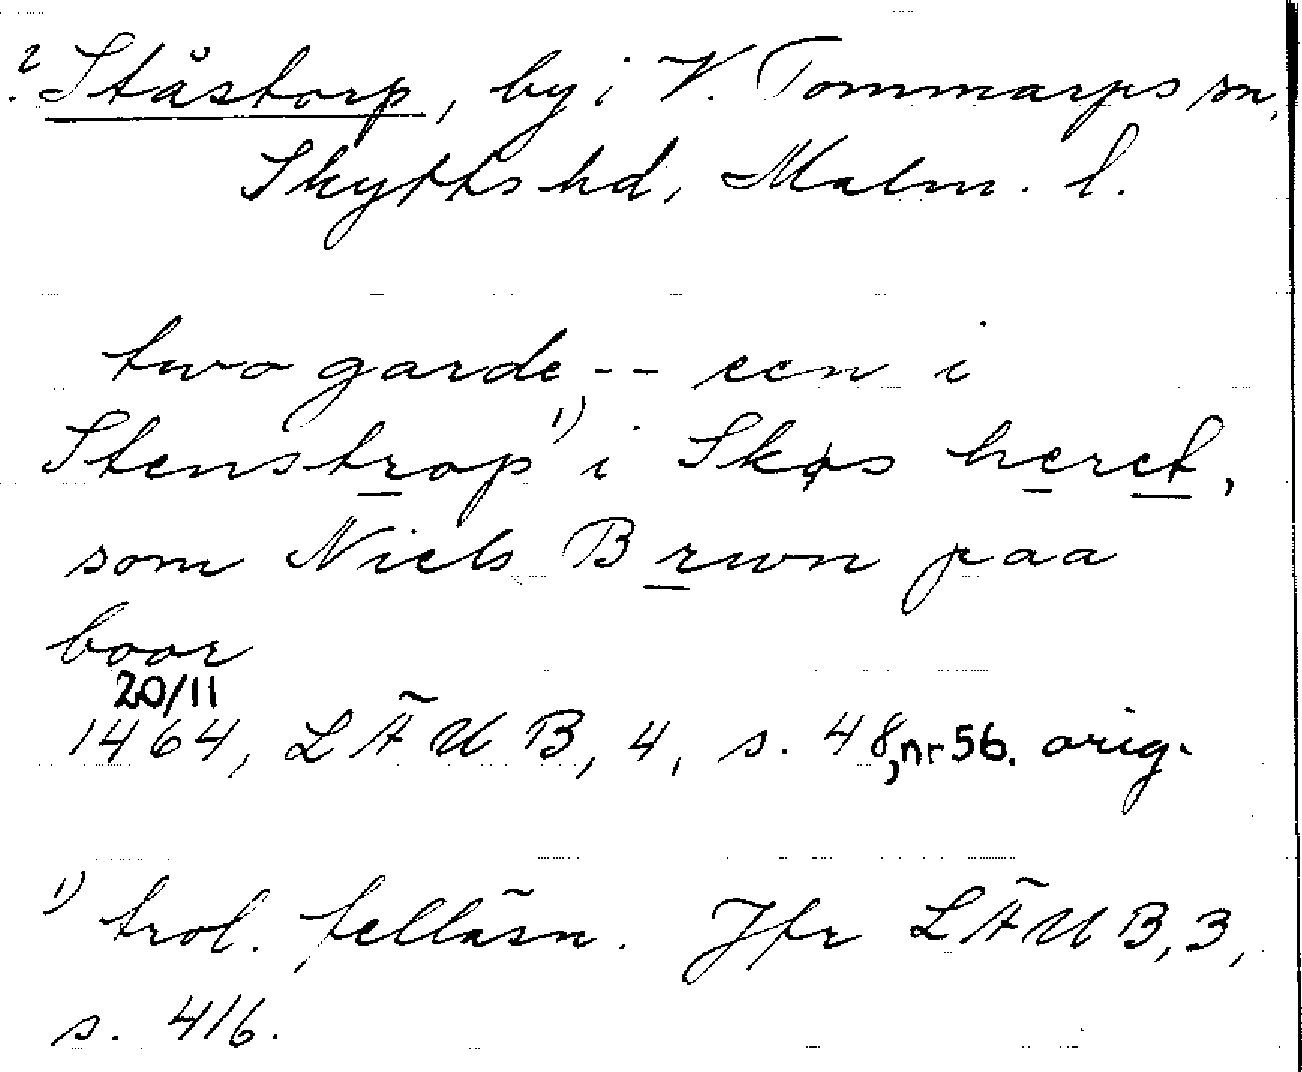 ? Ståstorp, by i V. Tommarps sn,
Skytts hd, Malm. l.
two garde -- een i
Stenstrop 1) i Skøs heret,
som Niels Brwn paa
boor
20/11
1464, LÄUB, 4, s. 48, nr 56. orig.
1) trol. felläsn. Jfr LÄUB, 3,
s. 416.